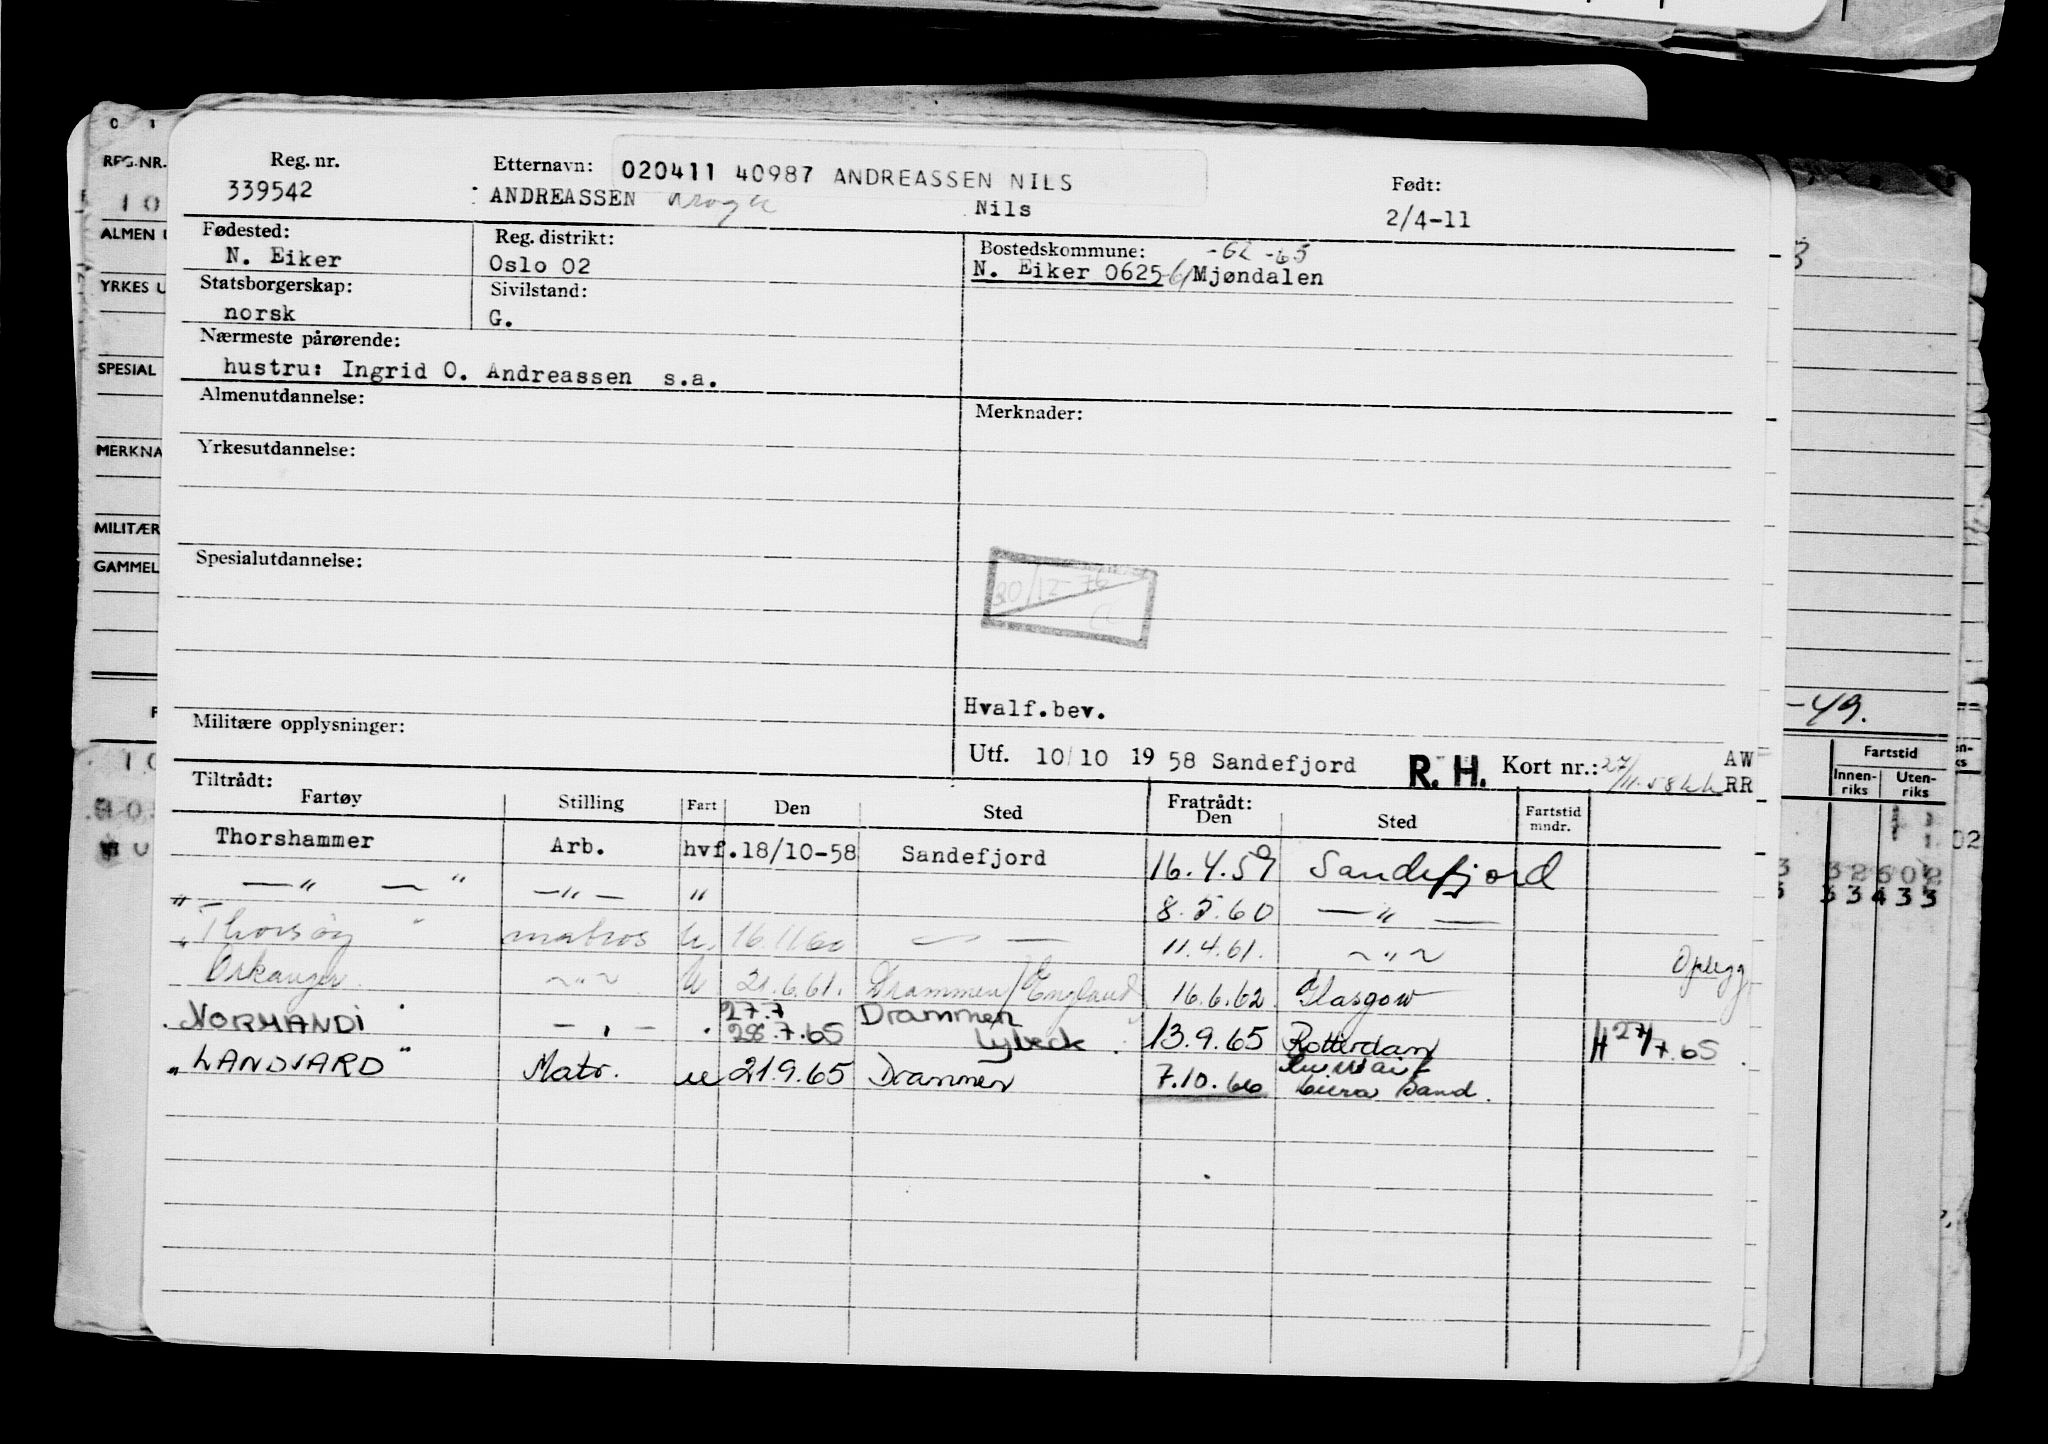 Reg. nr. Etternavn: 020411 40987 ANDREASSEN NILS Født:
339542 ANDREASSEN Nils 2/4-11
Fødested: Reg. distrikt: Bostedskommune: -62 -65
N. Eiker Oslo 02 N. Eiker 0625 Mjøndalen
Statsborgerskap: Sivilstand:
norsk G.
Nærmeste pårørende:
hustru: Ingrid O. Andreassen s.a.
Almenutdannelse: Merknader:
Yrkesutdannelse:
Spesialutdannelse:
Hvalf.bev.
Militære opplysninger:
Utf. 10/10 1958 Sandefjord R. H. Kort nr.: 27/11.58 AW RR
Tiltrådt: Fratrådt:
Fartøy Stilling Fart Den Sted Den Sted Fartstid mndr.
Thorshammer Arb. hvf. 18/10-58 Sandefjord 16.4.59 Sandefjord
" —"— " —"— " 8.5.60 —"—
"Thorsøy" matros 16.11.60 — — 11.4.61. ~"~
"Orkanger. ~"~ 21.6.61. Drammen/England 16.6.62. Glasgow Oplegg
27.7 Drammen
NORMANDI — " — 28.7.65 Lybeck 13.9.65 Rotterdam H 27/7.65
"LANDVARD" Matr. u 21.9.65 Drammen 7.10.66
REG.NR.
10
ALMEN U
YRKES U
SPESIAL
MERKNA
MILITÆR
GAMMEL
-49.
Fartstid
Innenriks Utenriks